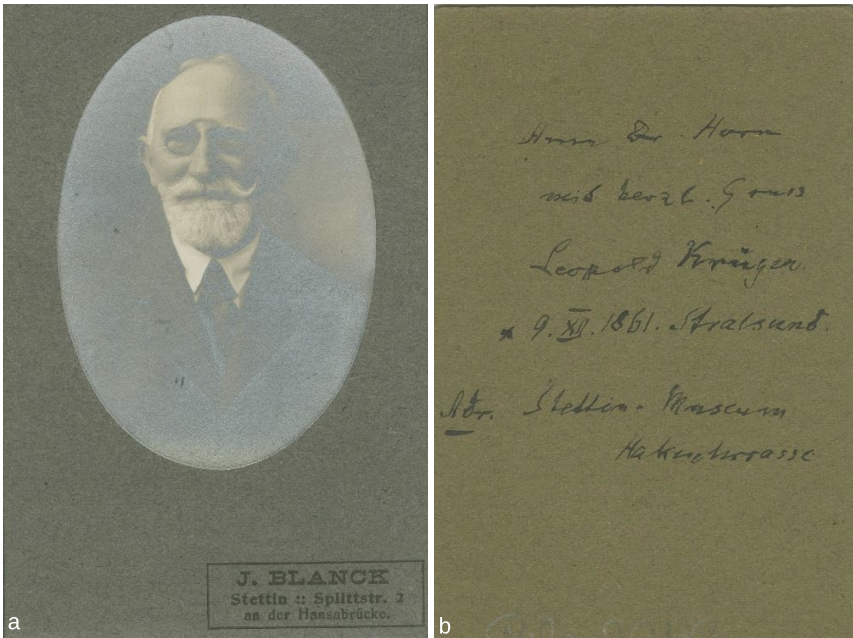 J. BLANCK
Stettin :: Splittstr. 2
an der Hansabrücke.
a
Herrn Dr. Horn
mit herzl. Gruss
Leopold Krüger.
* 9. XII. 1861. Stralsund.
Adr. Stettin. Museum
Hakenterrasse
b